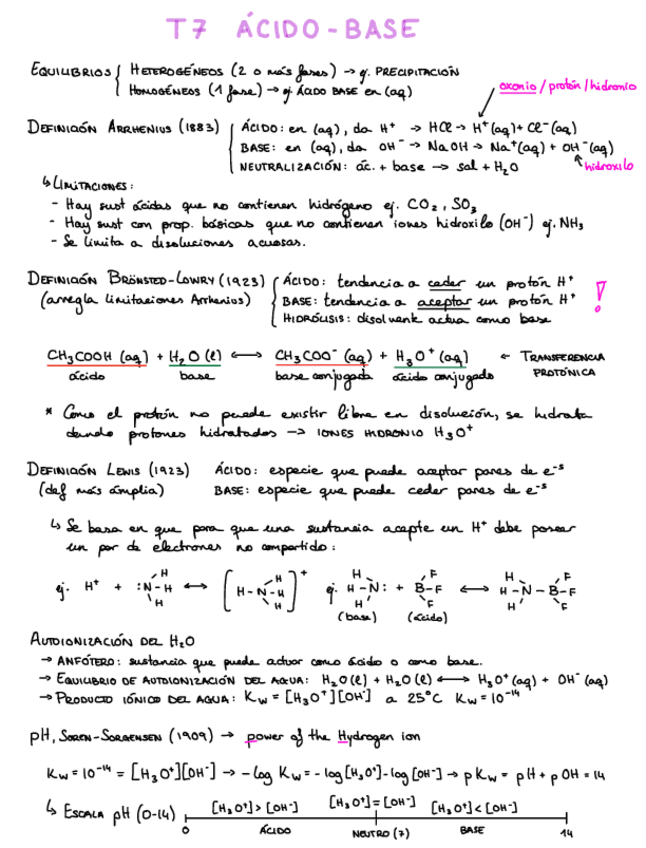 T7 ÁCIDO-BASE
EQUILIBRIOS { HETEROGÉNEOS (2 o más fases) → ej. PRECIPITACIÓN
HOMOGÉNEOS (1 fase) → ej ÁCIDO BASE en (aq)
oxonio / protón / hidronio
DEFINICIÓN ARRHENIUS (1883) ÁCIDO: en (aq), da H⁺ → HCl → H⁺(aq) + Cl⁻(aq)
BASE: en (aq), da OH⁻ → NaOH → Na⁺(aq) + OH⁻(aq)
NEUTRALIZACIÓN: ác. + base → sal + H₂O
hidroxilo
↳ LIMITACIONES:
- Hay sust ácidas que no contienen hidrógeno ej. CO₂, SO₃
- Hay sust con prop. básicas que no contienen iones hidroxilo (OH⁻) ej. NH₃
- Se limita a disoluciones acuosas.
DEFINICIÓN BRÖNSTED-LOWRY (1923) { ÁCIDO: tendencia a ceder un protón H⁺
(arregla limitaciones Arrhenius) BASE: tendencia a aceptar un protón H⁺ !
HIDRÓLISIS: disolvente actua como base
CH₃COOH (aq) + H₂O (l) ⟷ CH₃COO⁻ (aq) + H₃O⁺ (aq) ← TRANSFERENCIA
ácido base base conjugada ácido conjugado PROTÓNICA
* Como el protón no puede existir libre en disolución, se hidrata
dando protones hidratados → IONES HIDRONIO H₃O⁺
DEFINICIÓN LEWIS (1923) ÁCIDO: especie que puede aceptar pares de e⁻ˢ
(def más ámplia) BASE: especie que puede ceder pares de e⁻ˢ
↳ Se basa en que para que una sustancia acepte un H⁺ debe poseer
un par de electrones no compartido:
H H H F H F
ej. H⁺ + :N-H ⟷ [H-N-H]⁺ ej. H-N: + B-F ⟷ H-N-B-F
H H H F H F
(base) (ácido)
AUTOIONIZACIÓN DEL H₂O
→ ANFÓTERO: sustancia que puede actuar como ácido o como base.
→ EQUILIBRIO DE AUTOIONIZACIÓN DEL AGUA: H₂O(l) + H₂O(l) ⟷ H₃O⁺(aq) + OH⁻(aq)
→ PRODUCTO IÓNICO DEL AGUA: Kw = [H₃O⁺][OH⁻] a 25°C Kw = 10⁻¹⁴
pH, SOREN-SORAENSEN (1909) → power of the Hydrogen ion
Kw = 10⁻¹⁴ = [H₃O⁺][OH⁻] → -log Kw = -log[H₃O⁺]-log[OH⁻] → pKw = pH + pOH = 14
↳ ESCALA pH (0-14) [H₃O⁺] > [OH⁻] [H₃O⁺] = [OH⁻] [H₃O⁺] < [OH⁻]
0 ÁCIDO NEUTRO (7) BASE 14